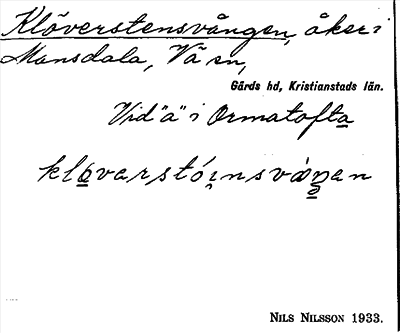 Klöverstensvången, åker i
Mansdala, Vä sn,
Gärds hd, Kristianstads län.
Vid "a" i Ormatofta
kløvarstóinsvåŋan
NILS NILSSON 1933.